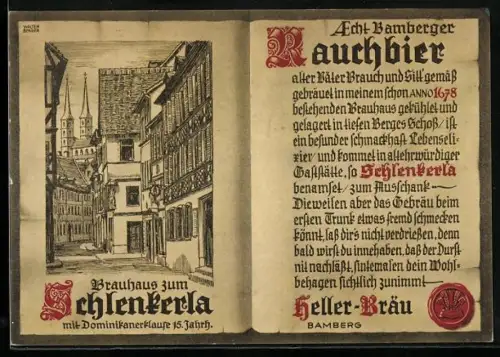 WALTER
Brauhaus zum
Schlenkerla
mit Dominikanerklause 15. Jahrh.
Æcht Bamberger
Rauchbier
alter Väter Brauch und Sitt gemäß
gebräuet in meinem schon ANNO 1678
bestehenden Brauhaus gekühlet und
gelagert in tiefen Berges Schoß/ist
ein besunder schmackhaft Lebenseli-
xier/ und kommet in altehrwürdiger
Gaststätte, so Schlenkerla
benamset/ zum Ausschank
Dieweilen aber das Gebräu beim
ersten Trunk etwas fremd schmecken
könnt, laß dirs nicht verdrießen, denn
bald wirst du innehaben, daß der Durst
nit nachläßt, sintemalen dein Wohl-
behagen sichtlich zunimmt
Heller-Bräu
BAMBERG